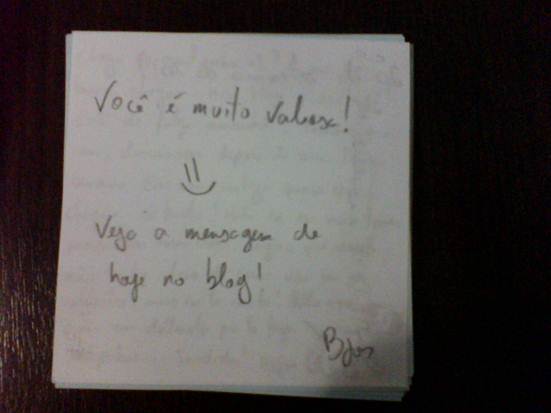 Você é muito valiosa!
Veja a mensagem de
hoje no blog!